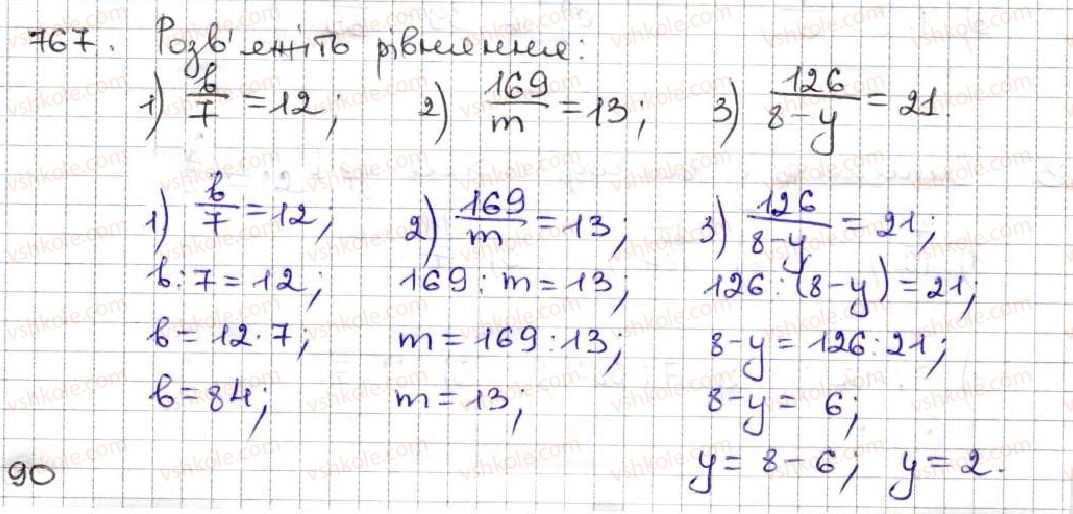 767. Розв'яжіть рівняння:
1) b/7 = 12; 2) 169/m = 13; 3) 126/(8-y) = 21.
1) b/7 = 12; 2) 169/m = 13; 3) 126/(8-y) = 21;
b:7 = 12; 169 : m = 13; 126 : (8-y) = 21;
b = 12·7; m = 169 : 13; 8-y = 126:21;
b = 84; m = 13; 8-y = 6;
y = 8-6; y = 2.
90